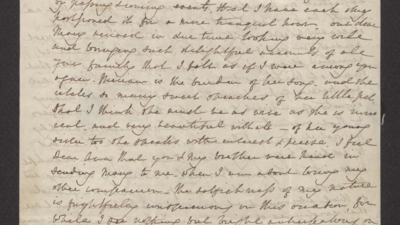 of passing & coming events, that I have each day
postponed it for a more tranquil hour, our dear
Mary arrived in due time looking very well
and bringing such delightful accounts of all
your family that I felt as if I were among you
again. Miriam is the burden of her song, and she
relates so many sweet speeches of her little pet,
that I think she must be as wise as she is inno
cent, and very beautiful withal - of her young
sister too she speaks with interest & praise. I feel
Dear Anna that you & my brother were kind in
sending Mary to me, when I am about losing my
other companion - the selfishness of my nature
is frightfully conspicuous on this occasion, for
while I see nothing but bright anticipations on